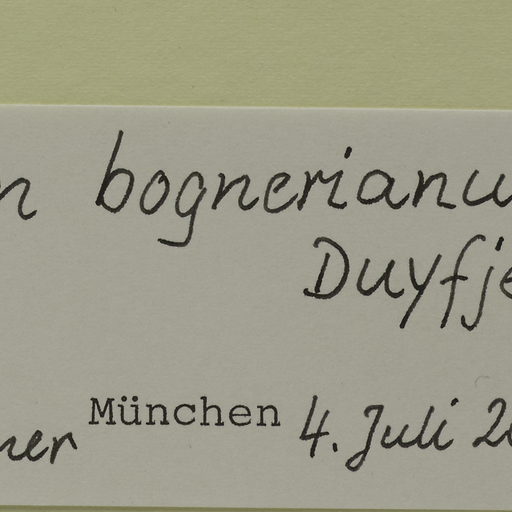 n bognerianu
Duyfje
ner München 4. Juli 20